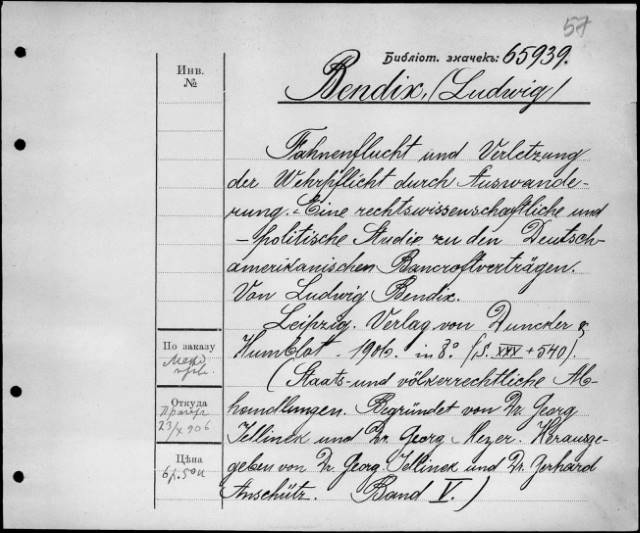 57
Библіот. значекъ: 65939.
Инв.
№
Bendix, (Ludwig)
Fahnenflucht und Verletzung
der Wehrpflicht durch Auswande-
rung. - Eine rechtswissenschaftliche und
-politische Studie zu den Deutsch-
amerikanischen Bancroftverträgen.
Von Ludwig Bendix.
Leipzig. Verlag von Duncker &
Humblot. 1906. in 8° (S. XXV + 540).
(Staats- und völkerrechtliche Ab-
handlungen. Begründet von Dr. Georg
Jellinek und Dr. Georg Meyer. Herausge-
geben von Dr. Georg Jellinek und Dr. Gerhard
Anschütz. Band V.)
По заказу
Откуда
23/X 906
Цѣна
6 р. 50 к